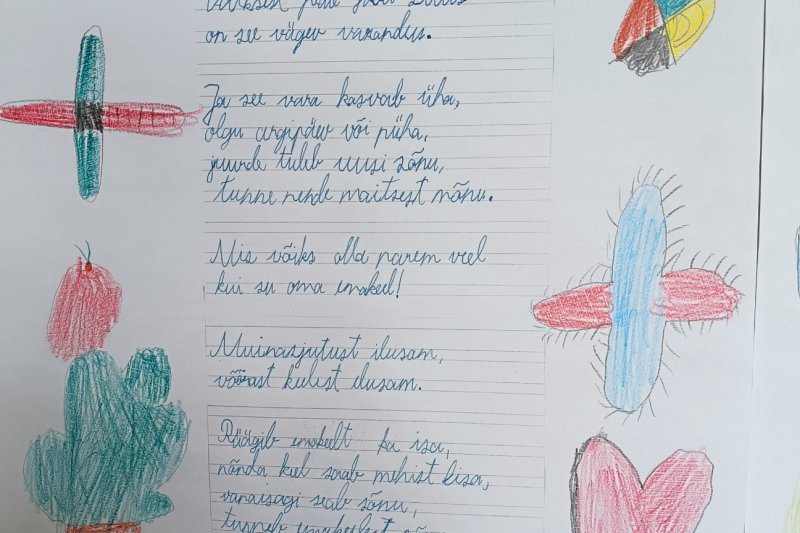 on see vägev varandus.
Ja see vara kasvab üha,
olgu argipäev või püha,
juurde tuleb uusi sõnu,
tunne nende maitsest mõnu.
Mis võiks olla parem veel
kui su oma emakeel!
Muinasjutust ilusam,
võõrast keelest ilusam.
Räägib emakeelt ka isa,
nõnda keel saab mehist lisa,
vanaisagi seab sõnu,
tunneb emakeelest